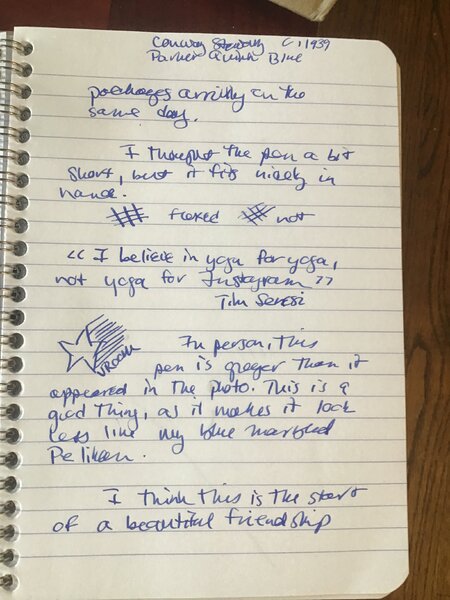 Conway Stewart C. 1939
Parker Quink Blue
packages arriving on the
same day.
I thought the pen a bit
short, but it fits nicely in
hand.
flexed not
“I believe in yoga for yoga,
not yoga for Instagram”
Tim
VROOM
In person, this
pen is greyer than it
appeared in the photo. This is a
good thing, as it makes it look
less like my blue marbled
Pelikan.
I think this is the start
of a beautiful friendship